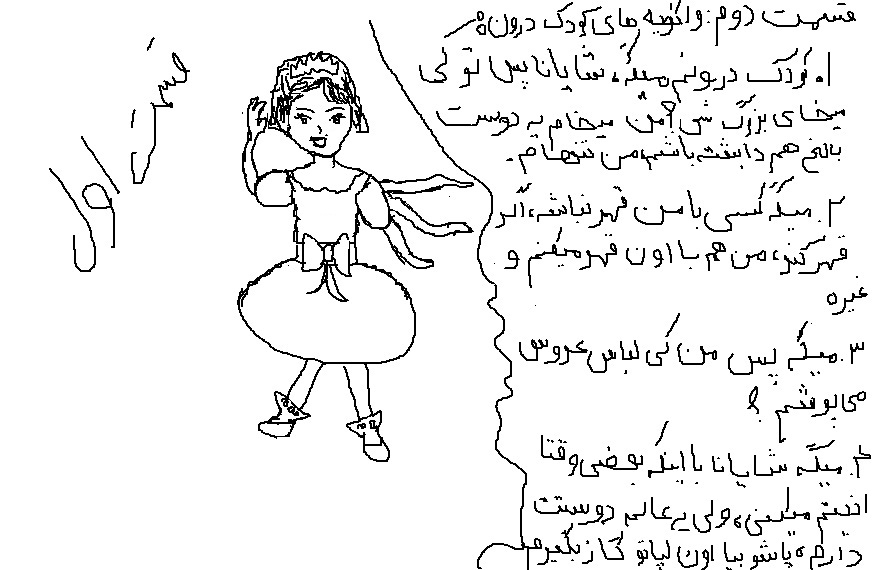 قسمت دوم: واگویه های کودک درون:
۱. کودک درونم میگه، شایانا پس تو کی
میخای بزرگ شی؟ من میخام یه دوست
بالغ هم داشته باشم، من تنهام.
۲. میگه کسی با من قهر نباشه، اگر
قهر کنه، من هم با اون قهر میکنم و
غیره
۳. میگه پس من کی لباس عروس
می پوشم؟
۴. میگه شایانا با اینکه بعضی وقتا
اذیتم میکنی، ولی یه عالمه دوستت
دارم، پاشو بیا اون لپاتو گاز بگیرم
اول